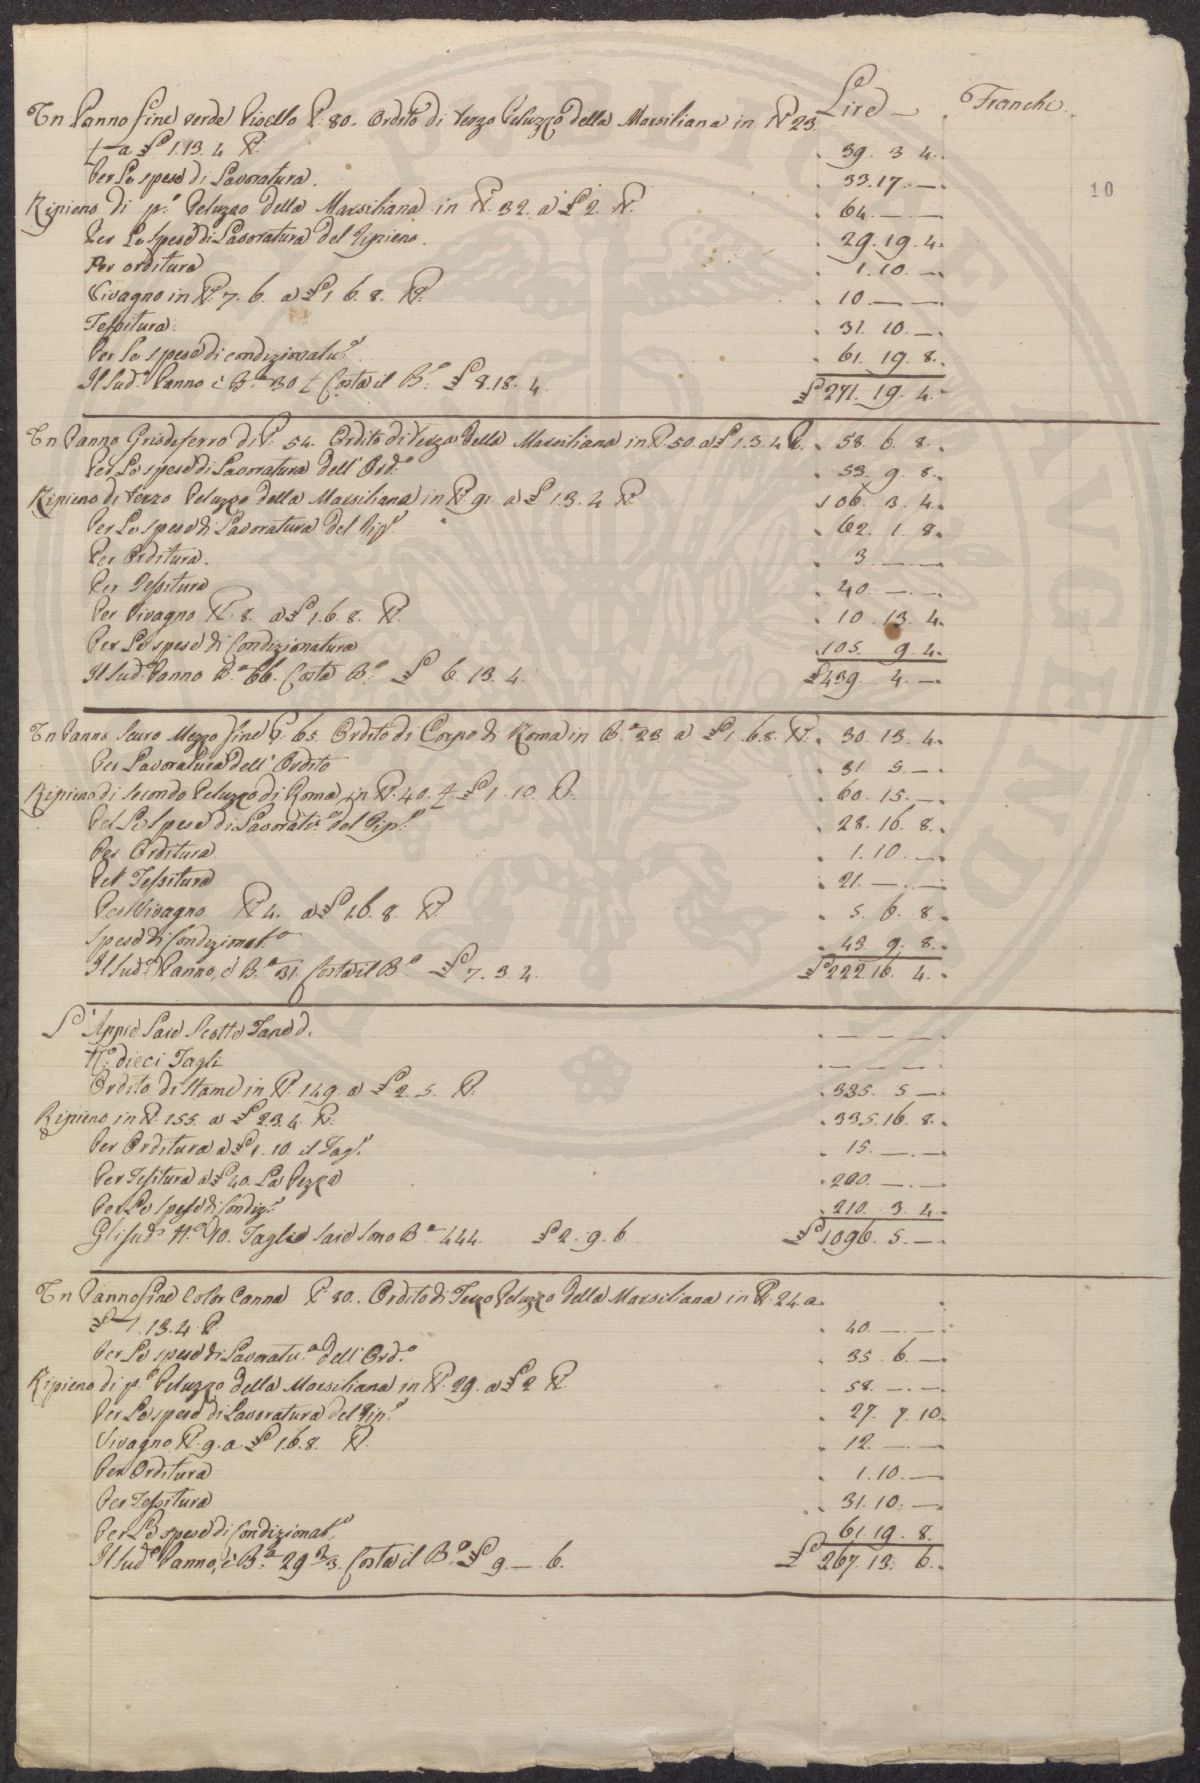 Lire Franchi
Un Panno fine verde Pisello P. 80. Ordito di terzo Peluzzo della Marsiliana in ℔ 23.
½ a £ 1.13.4 ℔. 39. 3. 4.
10
Per Le spese di Lavoratura. 33. 17. —
Ripieno di p.º Peluzzo della Marsiliana in ℔. 32. a £ 2. ℔. 64. — —
Per Le Spese di Lavoratura del Ripieno. 29. 19. 4.
Per orditura 1. 10. —
Vivagno in ℔. 7. 6. a £ 1. 6. 8. ℔. 10 — —
Tessitura. 31. 10. —
Per le spese di condizionatu.ª 61. 19. 8.
Il Sud.º Panno è B.ª 30 ½ Costa il B.º £ 8. 18. 4. £ 271. 19. 4.
Un Panno Grisdeferro di P. 54. Ordito di terzo della Marsiliana in ℔ 50. a £ 1. 3. 4 ℔. 58. 6. 8.
Per Le spese di Lavoratura dell' Ord.º 53. 9. 8.
Ripieno di terzo Peluzzo della Marsiliana in ℔ 91. a £ 1.3.4 ℔. 106. 3. 4.
Per Le spese di Lavoratura del Rip.º 62. 1. 8.
Per Orditura. 3 — —
Per Tessitura 40. — —
Per Vivagno ℔. 8. a £ 1. 6. 8. ℔. 10. 13. 4.
Per Le spese di Condizionatura 105. 9. 4.
Il Sud.º Panno B.ª 66. Costa B.º £ 6. 13. 4. £ 439. 4. —
Un Panno Scuro Mezzo fine P. 65. Ordito di Corpo di Roma in B.ª 23 a £ 1. 6. 8. ℔. 30. 13. 4.
Per Lavoratura dell' Ordito 31. 5. —
Ripieno di Secondo Peluzzo di Roma in ℔. 40. ½ £ 1. 10. ℔. 60. 15. —
Per Le Spese di Lavoratu.ª del Rip.º 28. 16. 8.
Per Orditura 1. 10. —
Per Tessitura 21. — —
Per Vivagno ℔ 4. a £ 1.6. 8. ℔. 5. 6. 8.
Spese di Condizionat.ª 43. 9. 8.
Il Sud.º Panno, è B.ª 31 Costa il B.º £ 7. 3. 4. £ 222. 16. 4.
Saie Scotto
N.º dieci Tagli — — —
Ordito di Stame in ℔. 149. a £ 2. 5. ℔. 335. 5 —
Ripieno in ℔. 155. a £ 2.3.4. ℔. 335. 16. 8.
Per Orditura a £ 1. 10. il Tag.º 15. — —
Per Tessitura a £ 40. La Pezza 200. — —
Per Le Spese di Condiz.ª 210. 3. 4.
Gli sud.i N.º 10. Taglie Saie Sono B.ª 444. £ 2. 9. 6 £ 1096. 5. —
Un Panno fine Color Canna P. 80. Ordito di Terzo Peluzzo della Marsiliana in ℔. 24. a
£ 1. 13. 4. ℔ 40. — —
Per Le spese di Lavoratu.ª dell' Ord.º 35. 6. —
Ripieno di p.º Peluzzo della Marsiliana in ℔. 29. a £ 2 ℔. 58. — —
Per Le spese di Lavoratura del Rip.º 27. 7. 10.
Vivagno ℔. 9. a £ 1.6. 8. ℔. 12. — —
Per Orditura 1. 10. —
Per Tessitura 31. 10. —
Per Le spese di Condizionat.ª 61. 19. 8.
Il Sud.º Panno, è B.ª 29 2/3. Costa il B.º £ 9. — 6. £ 267. 13. 6.